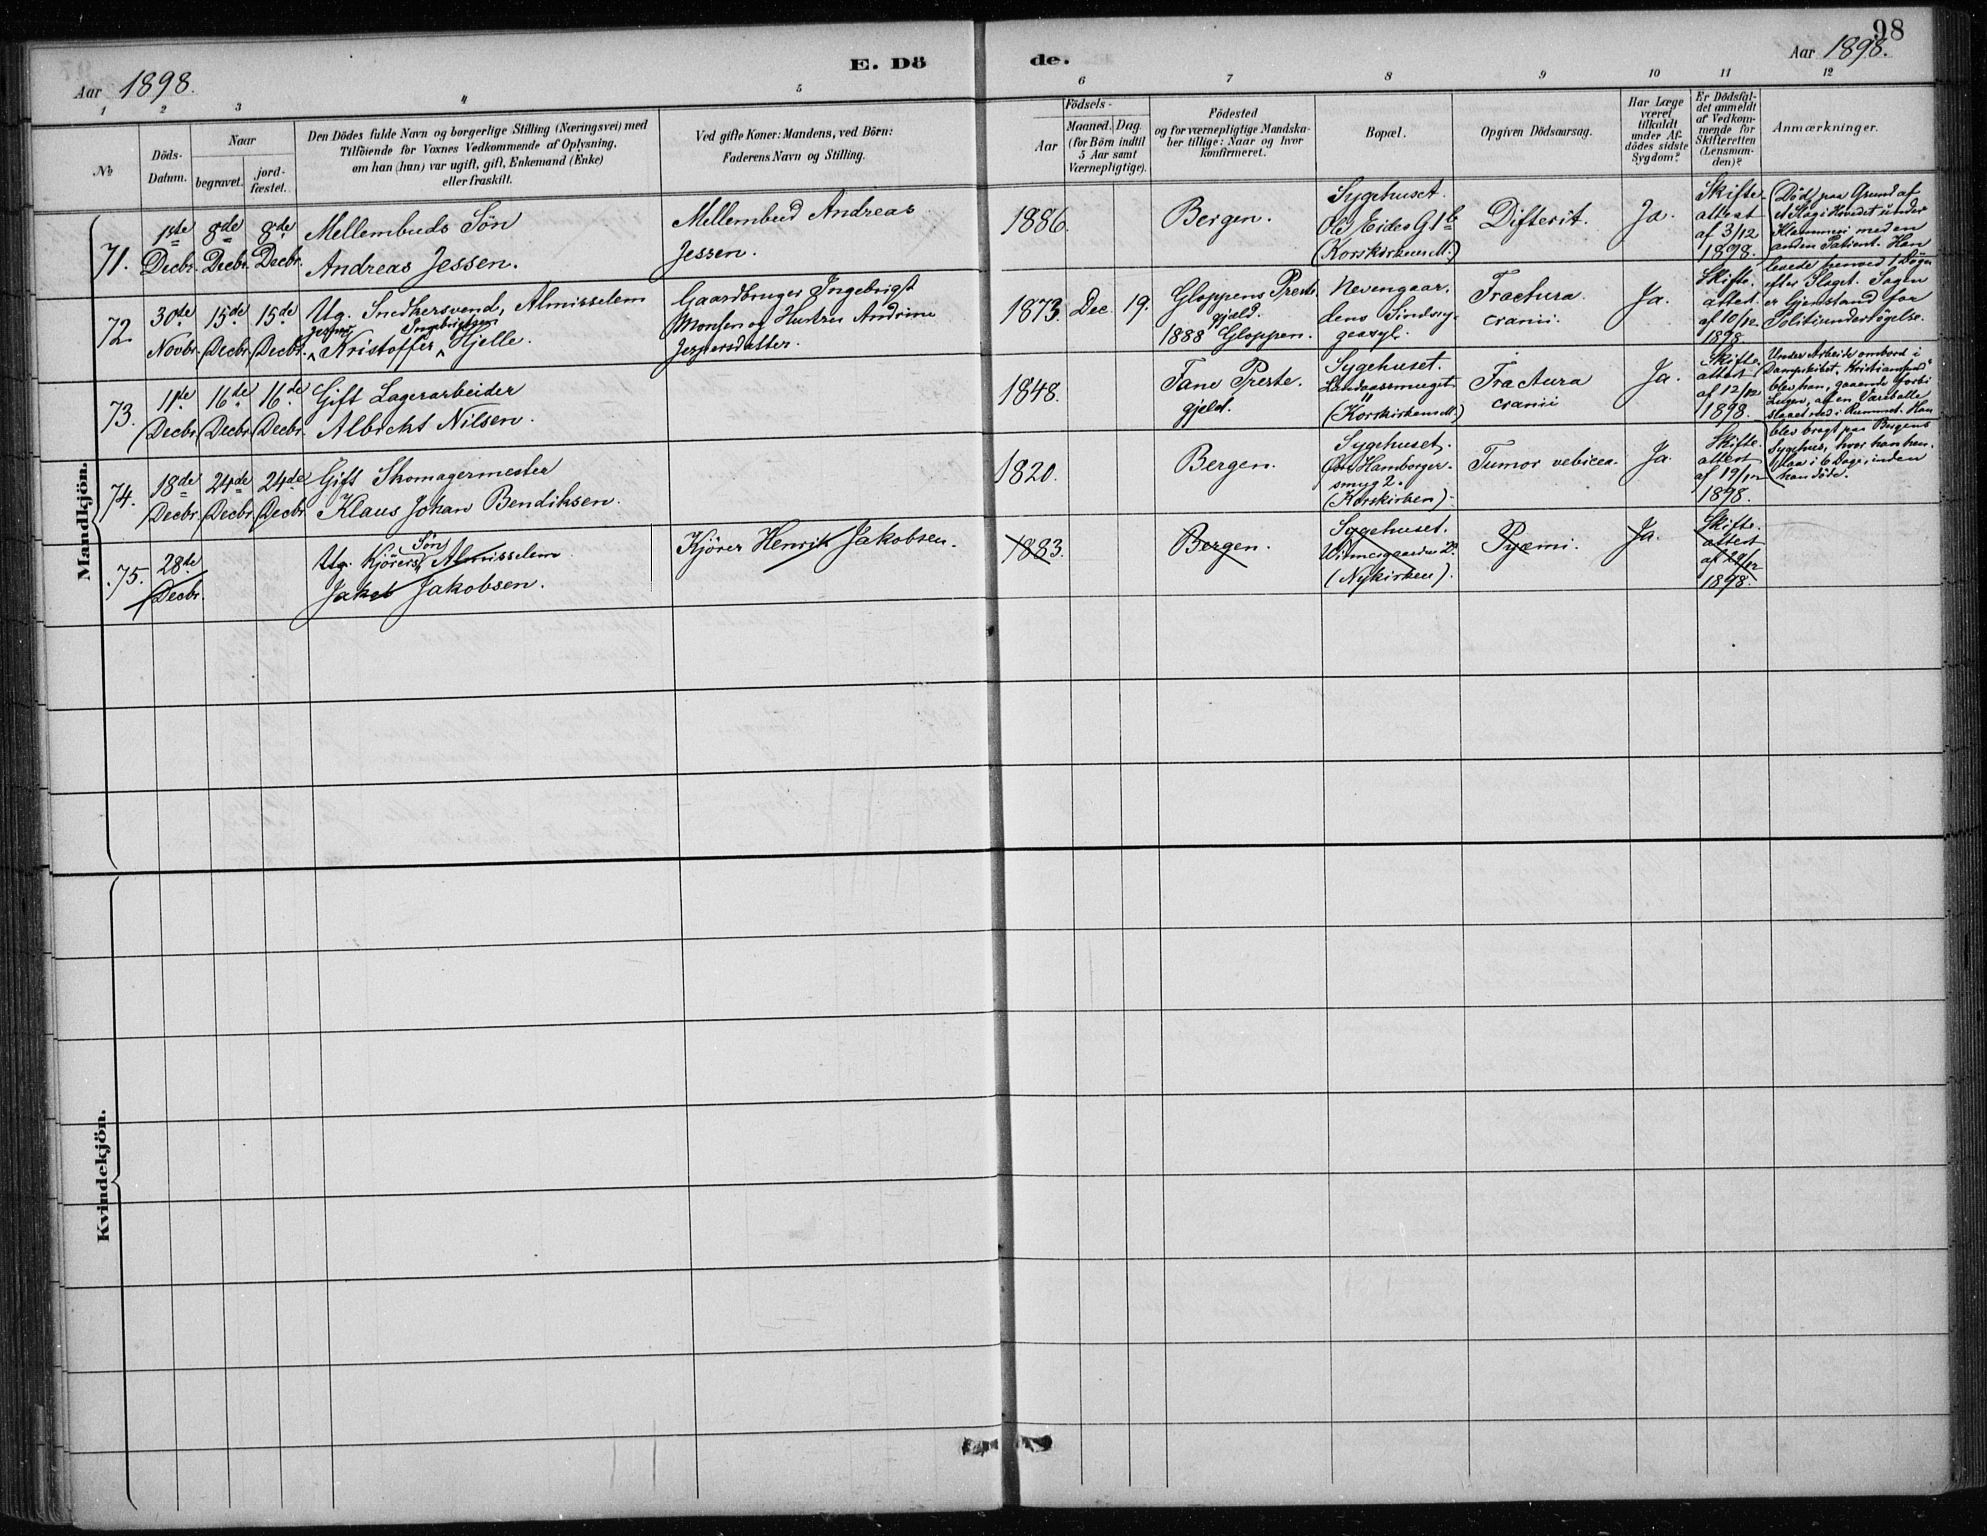 98
Aar 1898.
E. Dö
de.
Aar 1898.
1 2 3 4 5 6 7 8 9 10 11 12
№
Döds-
Datum.
Naar
begravet.
jord-
fæstet.
Den Dödes fulde Navn og borgerlige Stilling (Næringsvei) med
Tilföiende for Voxnes Vedkommende af Oplysning,
om han (hun) var ugift, gift, Enkemand (Enke)
eller fraskilt.
Ved gifte Koner: Mandens, ved Börn:
Faderens Navn og Stilling.
Födsels-
Aar
Maaned.
Dag.
(for Börn indtil
5 Aar samt
Værnepligtige).
Födested
og for værnepligtige Mandska-
ber tillige: Naar og hvor
konfirmeret.
Bopæl.
Opgiven Dödsaarsag.
Har Læge
været
tilkaldt
under Af-
dödes sidste
Sygdom?
Er Dödsfal-
det anmeldt
af Vedkom-
mende for
Skifteretten
(Lensman-
den)?
Anmærkninger.
Mandkjön.
71.
1ste
Decbr.
8de
Decbr.
8de
Decbr.
Mellembuds Sön
Andreas Jessen.
Mellembud Andreas
Jessen.
1886.
Bergen.
Sygehuset.
Ole Eides G
(Korskirken)
Difterit.
Ja.
Skifte-
attest
af 3/12
1898.
72.
30de
Novbr.
15de
Decbr.
15de
Decbr.
Ug. Snedkersvend, Almisselem
Jesper Ingebrigtsen
Kristoffer Hjelle.
Gaardbruger Ingebrigt
Monsen og Hustru Andrine
Jespersdatter.
1873.
Dec.
19.
Gloppens Preste-
gjæld.
1888 Gloppen.
Nevengaar-
dens Sindssy-
geasyl.
Fractura
cranii.
Ja.
Skifte-
attest
af 10/12
1898.
(Död paa Grund af
et Slag i Hovedet under
Klammeri med en
anden Patient. Han
levede henved 1 Dögn
efter Slaget. Sagen
er Gjenstand for
Politiundersögelse.
73.
11te
Decbr.
16de
Decbr.
16de
Decbr.
Gift Lagerarbeider
Albrickt Nilsen.
1848.
Fane Preste-
gjeld.
Sygehuset.
(Korskirken)
Fractura
cranii
Ja.
Skifte-
attest
af 12/12
1898.
Under Arbeide ombord i
Dampskibet "Kristiansund"
blev han, gaaende forbi
Lugen, af en Vareballe
slaaet ned i Rummet. Han
blev bragt paa Bergens
Sygehus, hvor han hen-
laa i 6 Dage, inden
han döde.
74.
18de
Decbr.
24de
Decbr.
24de
Decbr.
Gift Skomagermester
Klaus Johan Bendiksen.
1820.
Bergen.
Sygehuset.
Hamborger-
smug 2.
(Korskirken).
Tumor vesicea.
Ja.
Skifte-
attest
af 19/12
1898.
75.
28de
Decbr.
Ug. Kjörers Sön Almisselem
Jakob Jakobsen.
Kjörer Henrik Jakobsen.
1883.
Bergen.
Sygehuset.
(Nykirken).
Pyæmi.
Ja.
Skifte-
attest
af 29/12
1898.
Kvindekjön.